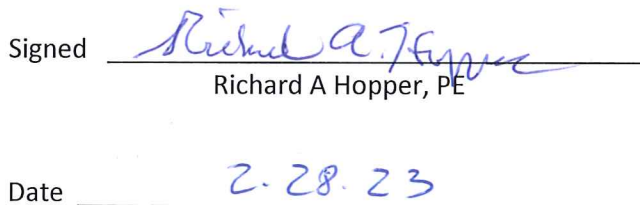 Signed Richard A. Hopper
Richard A Hopper, PE
Date 2.28.23